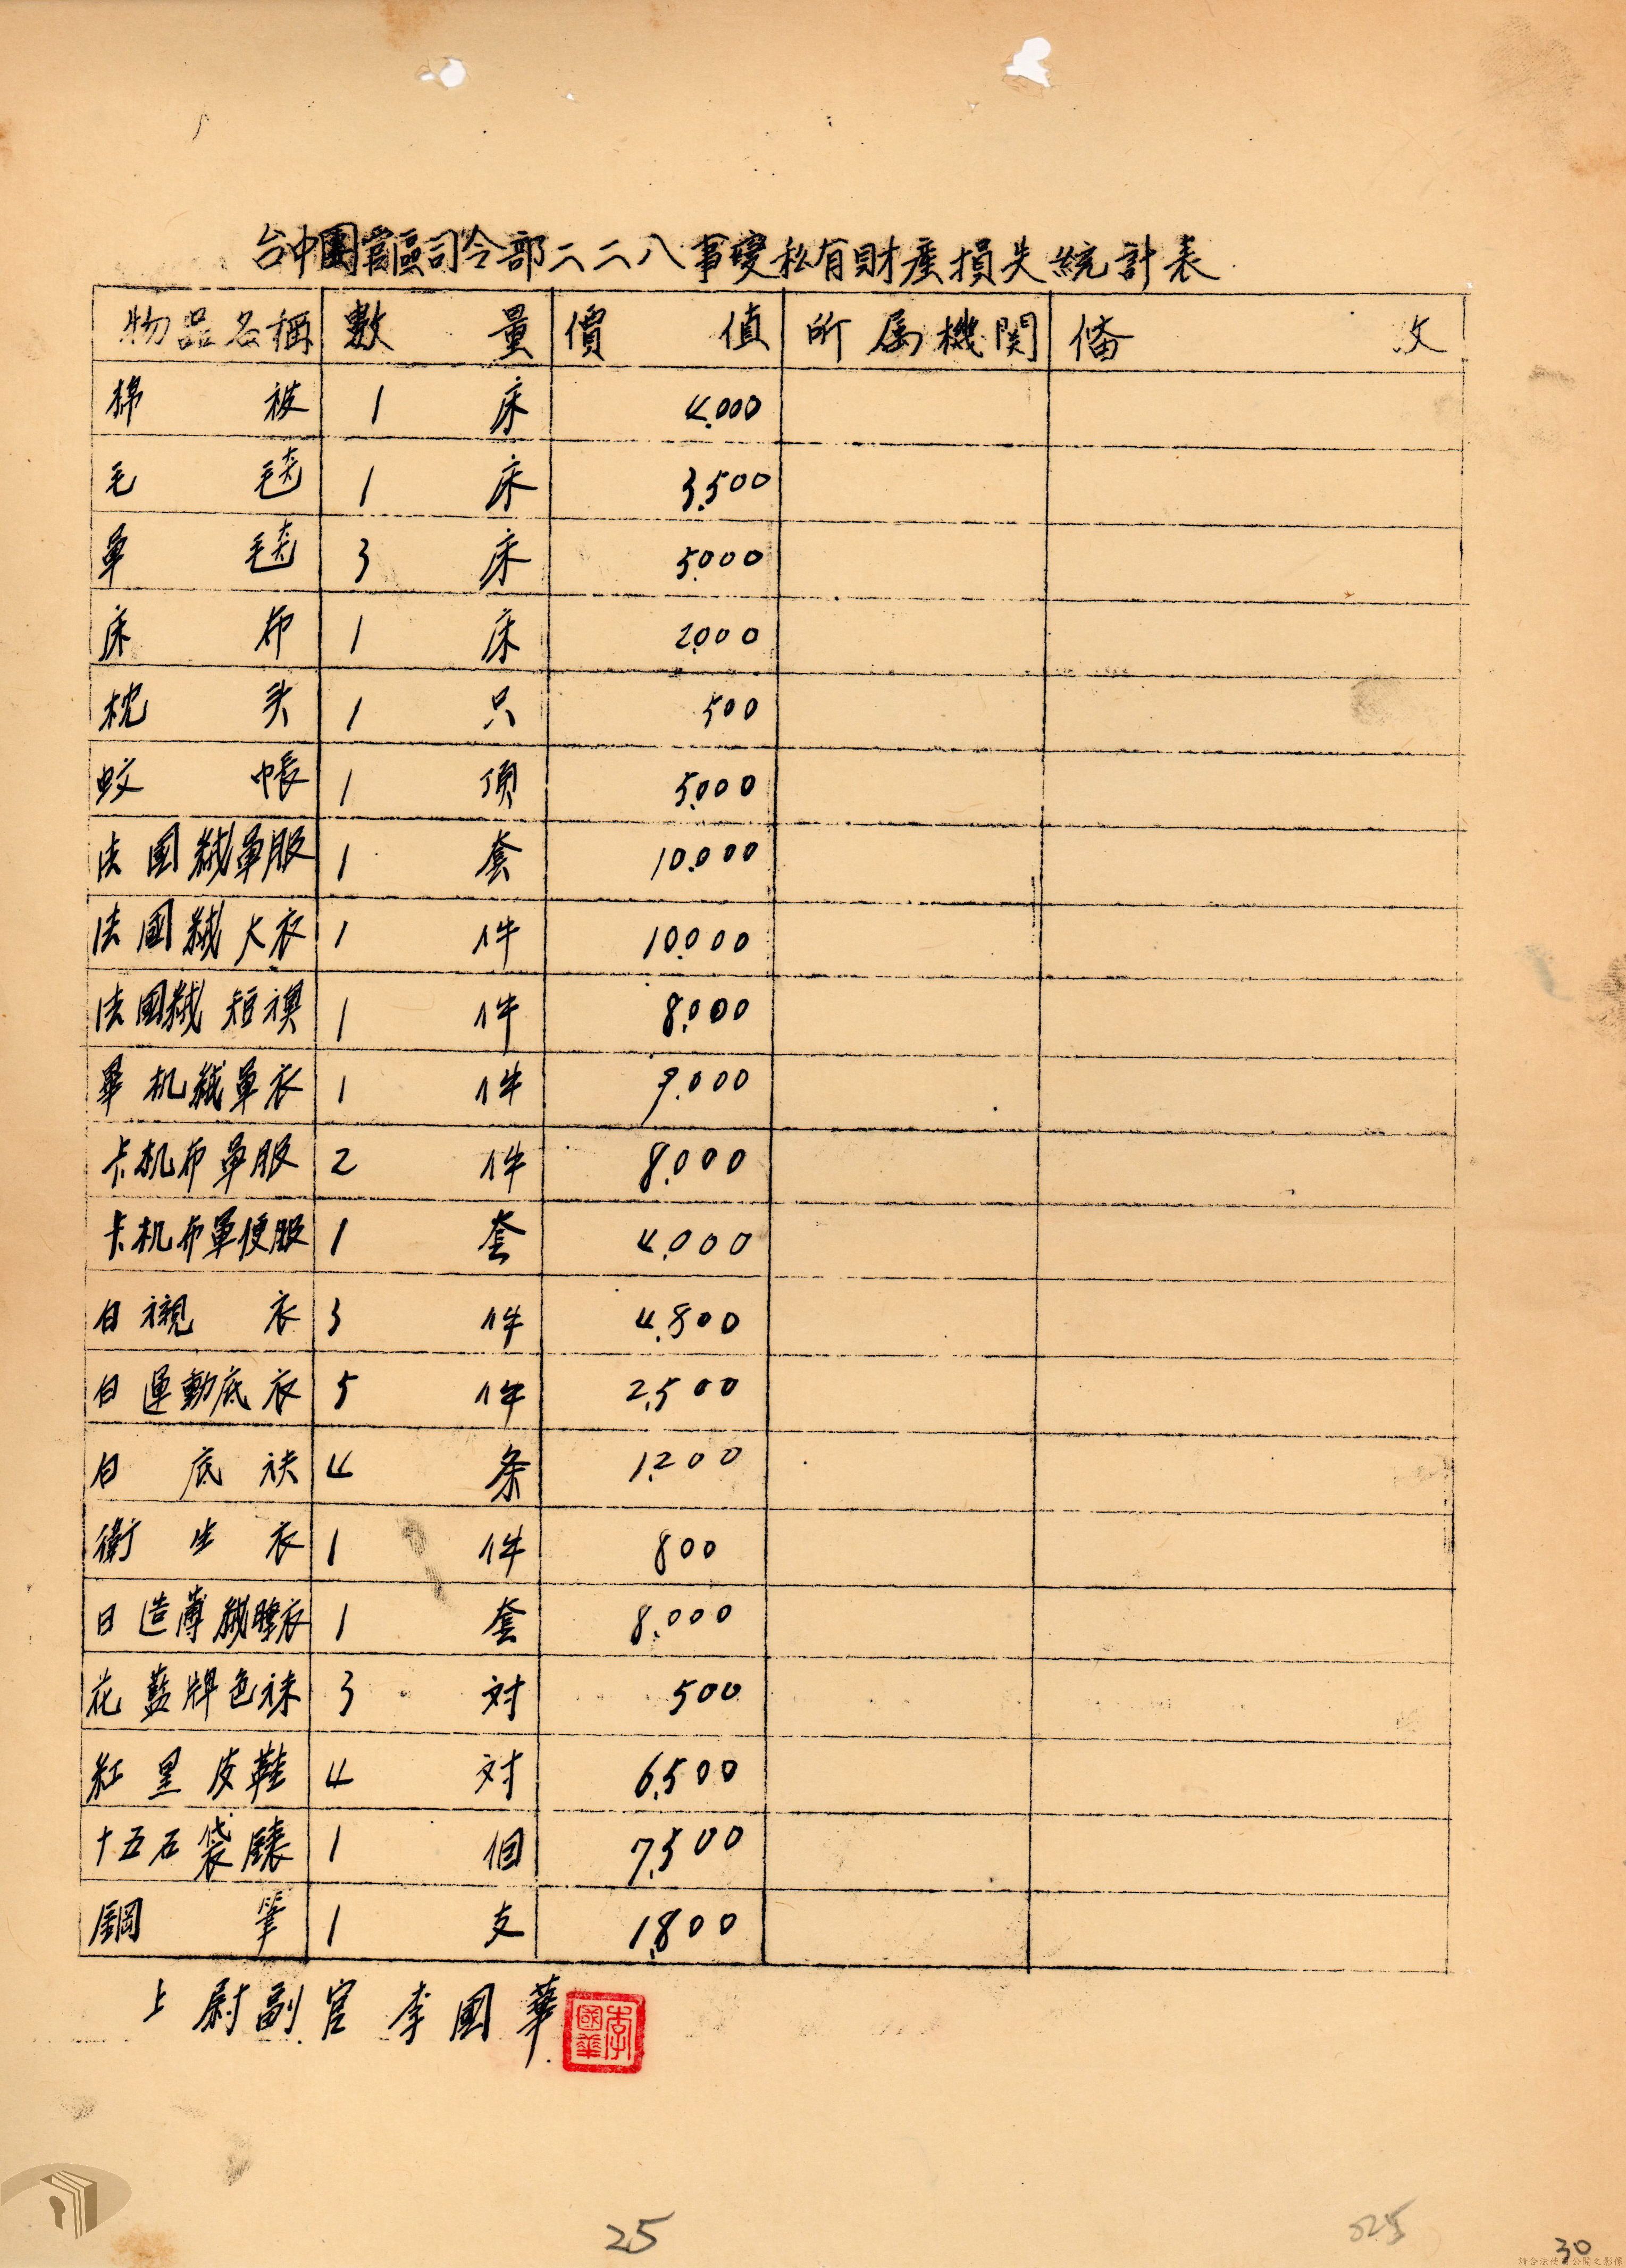 台中團管區司令部二二八事變私有財產損失統計表
物品名稱 數量 價值 所属機関 俻攷
棉被 1床 4.000
毛毯 1床 3.500
軍毯 3床 5.000
床布 1床 2.000
枕头 1只 500
蚊帳 1頂 5.000
法國絨軍服 1套 10.000
法國絨大衣 1件 10.000
法國絨短襖 1件 8.000
畢机絨軍衣 1件 9.000
卡机布軍服 2件 8.000
卡机布軍便服 1套 4.000
白襯衣 3件 4.800
白運動底衣 5件 2.500
白底衭 4条 1.200
衛生衣 1件 800
日造薄絨睡衣 1套 8.000
花藍牌色袜 3对 500
紅黑皮鞋 4对 6.500
十五石袋錶 1個 7.500
鋼筆 1支 1.800
上尉副官 李國華
李國華
25
525
30
請合法使用公開之影像